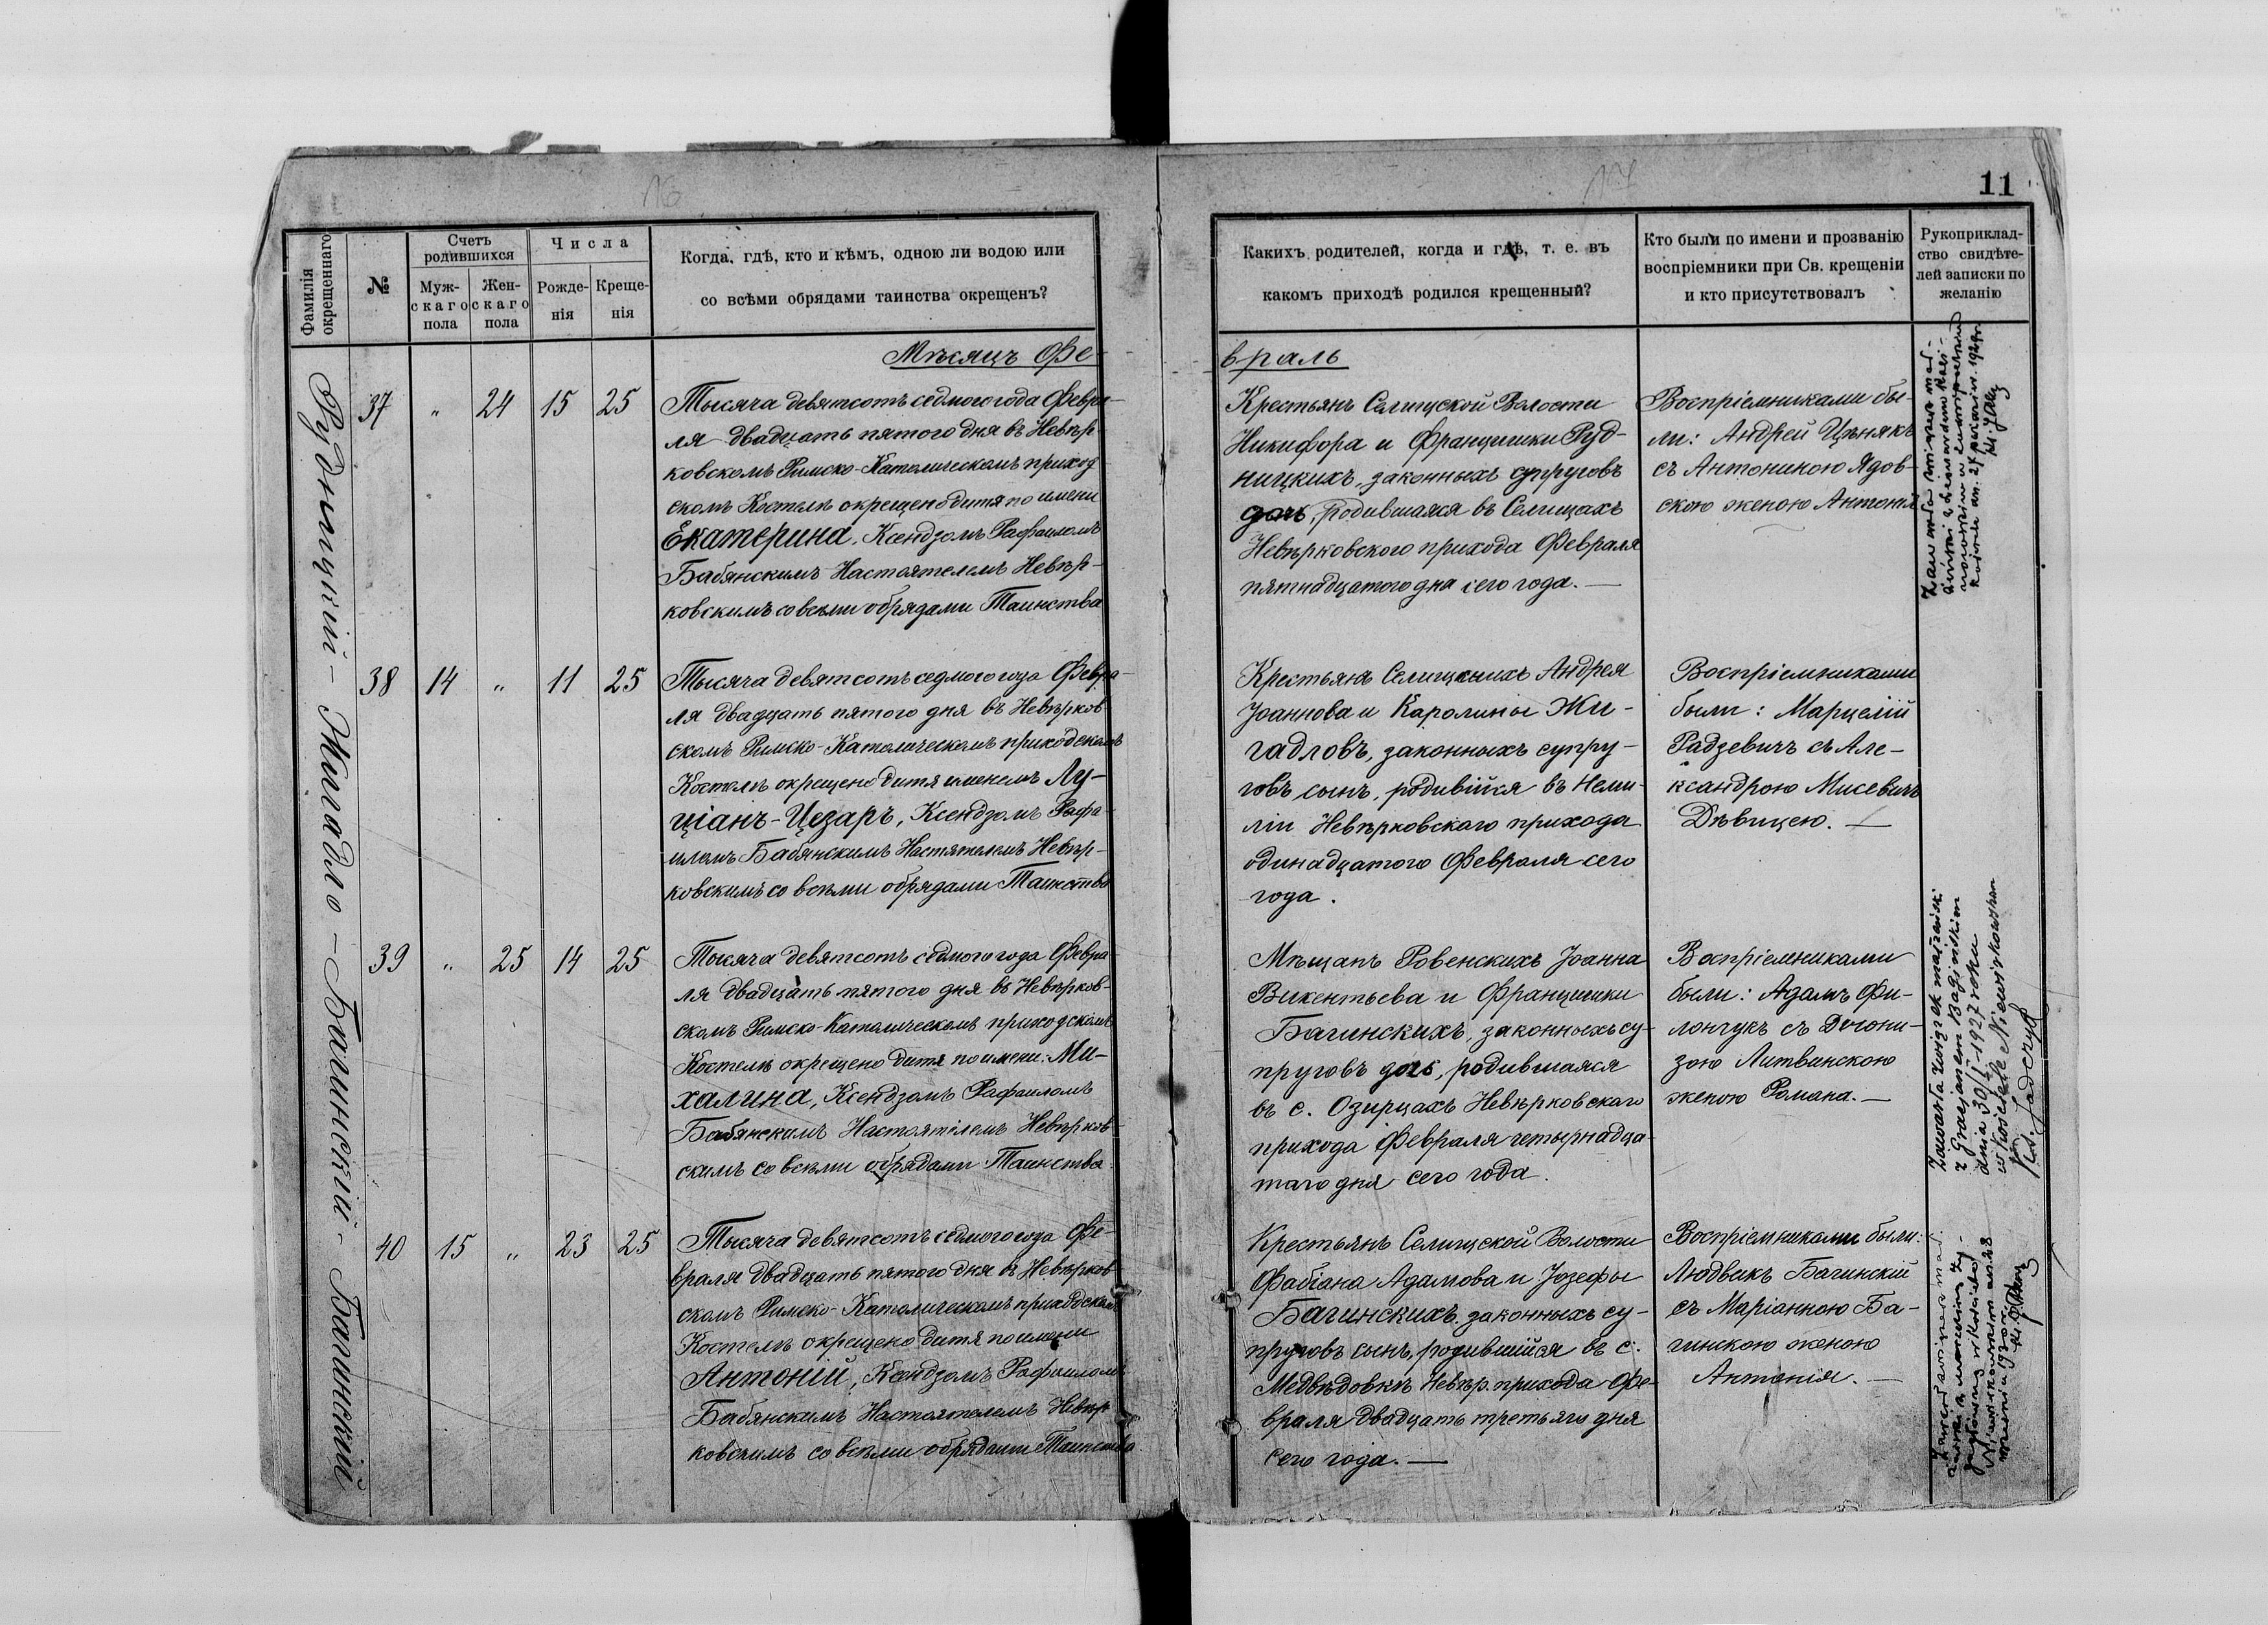 16
17
11
Фамилія окрещеннаго
№
Счетъ родившихся
Муж-
скаго
пола
Жен-
скаго
пола
Числа
Рожде-
нія
Креще-
нія
Когда, гдѣ, кто и кѣмъ, одною ли водою или
со всѣми обрядами таинства окрещенъ?
Какихъ родителей, когда и гдѣ, т. е. въ
какомъ приходѣ родился крещенный?
Кто были по имени и прозванію
воспріемники при Св. крещеніи
и кто присутствовалъ
Рукоприклад-
ство свидѣте-
лей записки по
желанію
Мѣсяцъ Фе-
враль
Рудницкій - Жигадло - Багинскій - Багинскій
37 " 24 15 25
Тысяча девятсотъ седмого года Февра-
ля двадцать пятого дня въ Невѣр-
ковскомъ Римско-Католическомъ приход
скомъ Костелѣ окрещено дитя по имени
Екатерина, Ксендзомъ Рафаиломъ
Бабянскимъ Настоятелемъ Невѣр-
ковскимъ со всѣми обрядами Таинства
Крестьянъ Селищской Волости
Никифора и Францишки Руд-
ницкихъ, законныхъ супруговъ
дочь, родившаяся въ Селищахъ
Невѣрковского прихода Февраля
пятнадцатого дна сего года.
Воспріемниками бы-
ли: Андрей Цѣнякъ
съ Антониною Ядов-
скою женою Антонія
38 14 " 11 25
Тысяча девятсотъ седмого года Февра-
ля двадцать пятого дня въ Невѣрков-
скомъ Римско-Католическомъ приходскомъ
Костелѣ окрещено дитя именемъ Лу-
ціанъ-Цезаръ, Ксендзомъ Рафа-
иломъ Бабянскимъ Настятелемъ Невѣр-
ковскимъ со всѣми обрядами Таинства
Крестьянъ Селищскихъ Андрея
Іоаннова и Каролины Жи-
гадловъ, законныхъ супру-
говъ сынъ, родивійся въ Неми-
ліи Невѣрковскаго прихода
одинадцатого Февраля сего
года.
Воспріемниками
были: Марцелій
Радзевичъ съ Але-
ксандрою Мисевичъ
Дѣвицею.
39 " 25 14 25
Тысяча девятсотъ седмого года Февра-
ля двадцать пятого дня въ Невѣрков-
скомъ Римско-Католическомъ приходскомъ
Костелѣ окрещено дитя по имени: Ми-
халина, Ксендзомъ Рафаиломъ
Бабянскимъ Настоятілемъ Невѣрков-
скимъ со всѣми обрядами Таинства.
Мѣщанъ Ровенскихъ Іоанна
Викентьева и Францишки
Багинскихъ, законныхъ су-
пруговъ дочь, родившаяся
въ с. Озирцахъ Невѣрковскаго
прихода Февраля четырнадца-
таго дня сего года.
Воспріемниками
были: Адамъ Фи-
лончукъ съ
зою Литвинскою
женою Романа.
Zawarła związek małżeński
z Gracjanem Bagińskim
dnia 30/I 1927 roku
w kościele Niewirkowskim
Ks.
40 15 " 23 25
Тысяча девятсотъ седмого года Фе-
враля двадцать пятого дня въ Невѣрков-
скомъ Римско-Католическомъ приходскомъ
Костелѣ окрещено дитя по имени
Антоній, Ксендзомъ Рафаиломъ
Бабянскимъ Настоятелемъ Невѣр-
ковскимъ со всѣми обрядами Таинства
Крестьянъ Селищской Волости
Фабіана Адамова и Іозефы
Багинскихъ, законныхъ су-
пруговъ сынъ, родившійся въ с.
Медвѣдовкѣ Невѣр. прихода Фе-
враля двадцать третьяго дня
сего года.
Воспріемниками были:
Людвикъ Багинскій
съ Маріанною Ба-
гинскою женою
Антонія.